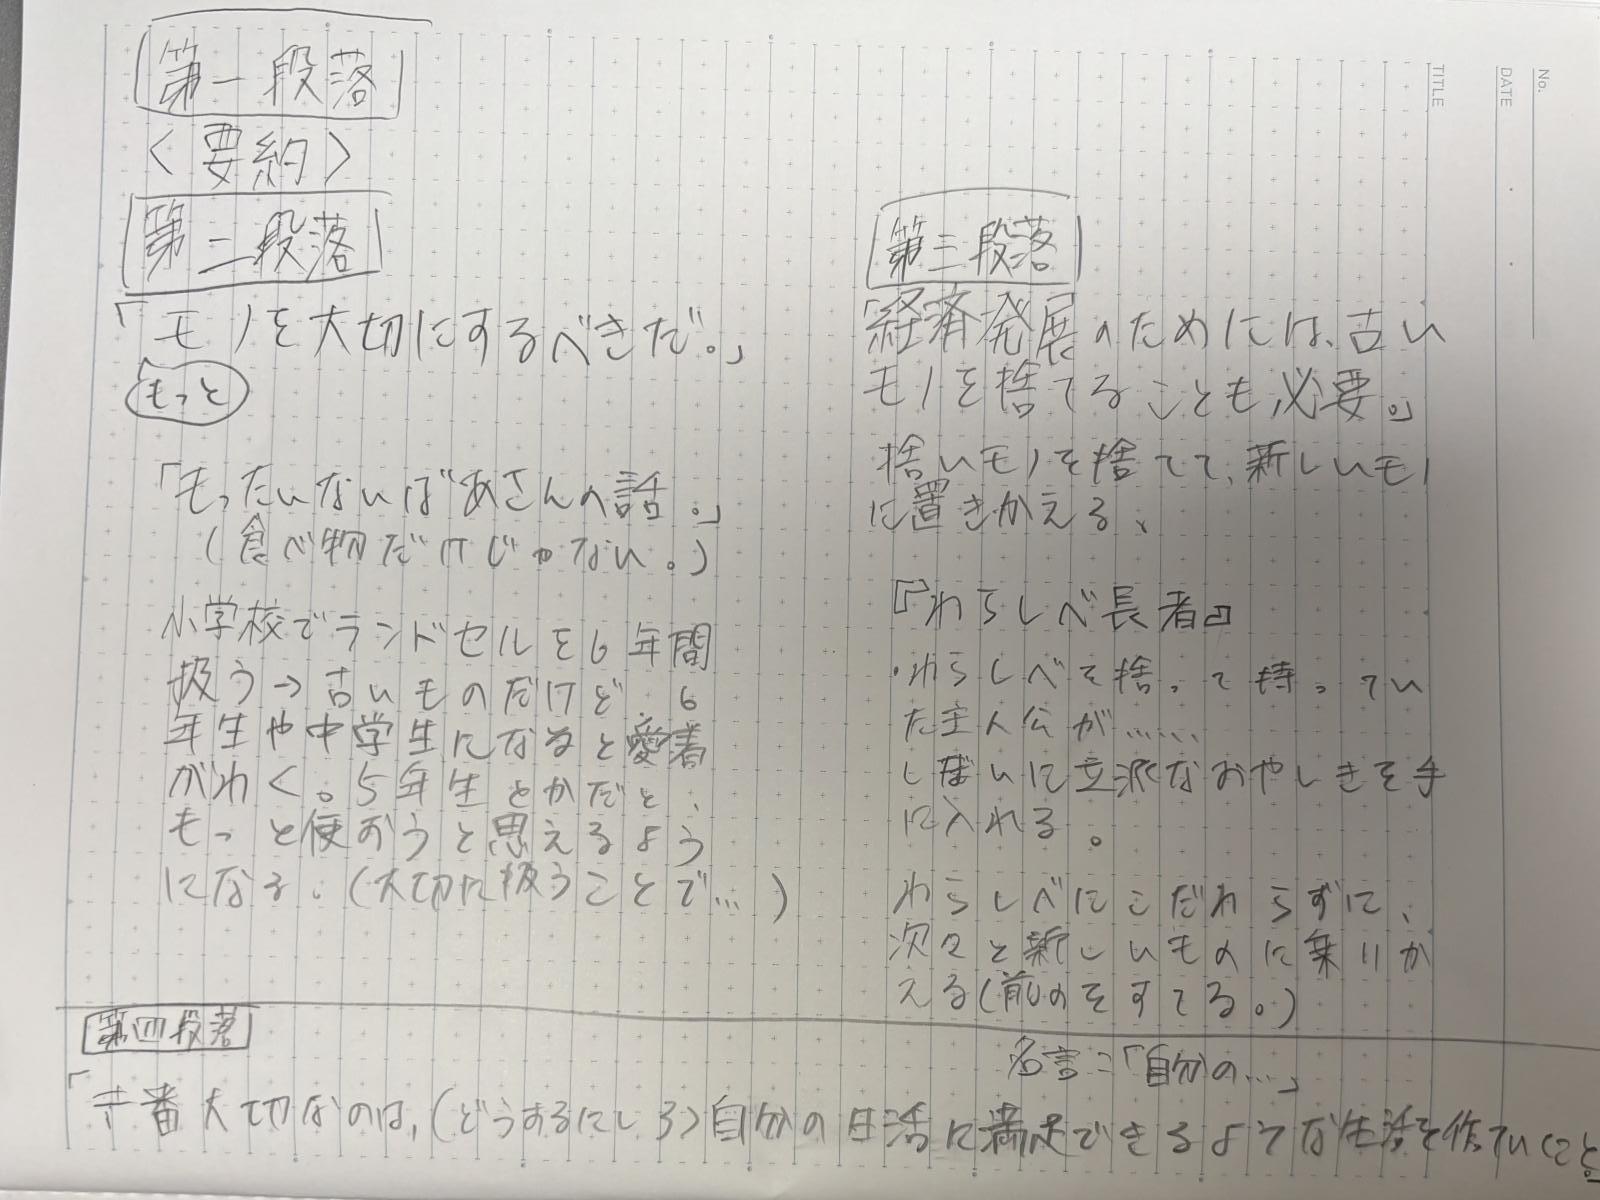 No.
DATE
TITLE
第一段落
<要約>
第二段落
「モノを大切にするべきだ。」
もっと
「もったいないばあさんの話。」
(食べ物だけじゃない。)
小学校でランドセルを6年間
扱う→古いものだけど、6
年生や中学生になると愛着
がわく。5年生とかだと、
もっと使おうと思えるよう
になる。(大切に扱うことで…)
第三段落
「経済発展のためには、古い
モノを捨てることも必要。」
捨いモノを捨てて、新しいモノ
に置きかえる、
『わらしべ長者』
・わらしべを捨って持ってい
た主人公が……
しまいに立派なおやしきを手
に入れる。
わらしべにこだわらずに、
次々と新しいものに乗りか
える(前のをすてる。)
第四段落
名言:「自分の…」
「一番大切なのは、(どうするにしろ)自分の生活に満足できるような生活を作ていくこと。